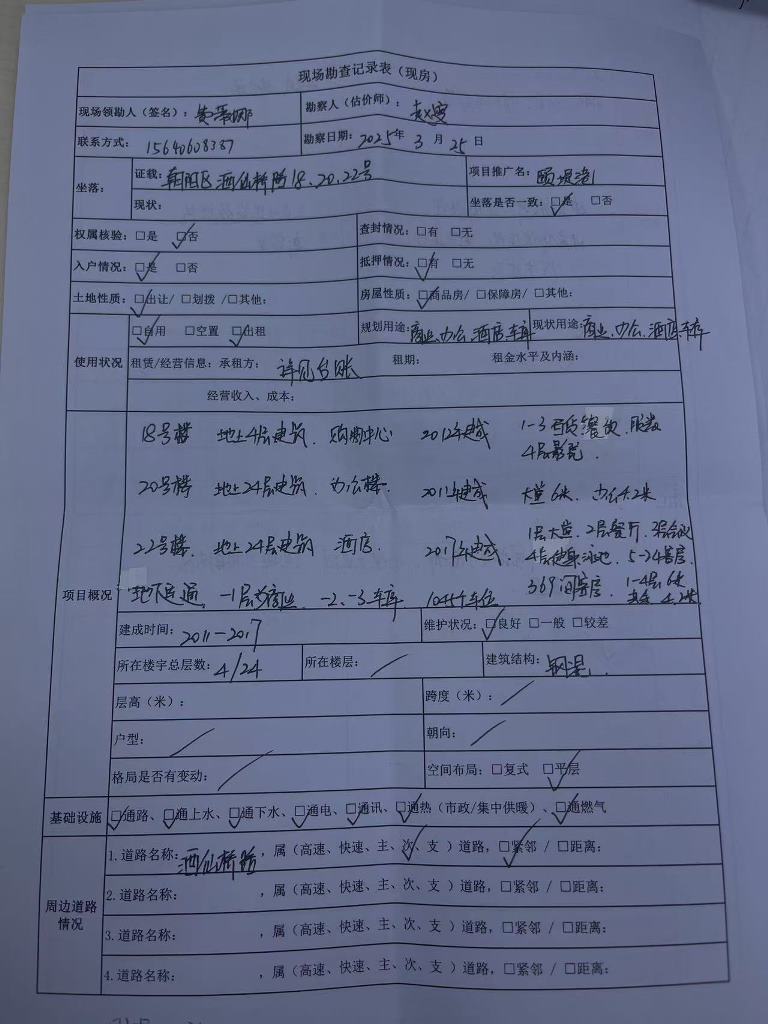 现场勘查记录表（现房）
现场领勘人（签名）： 勘察人（估价师）：
联系方式： 15640608387 勘察日期：2025年 3 月 25 日
坐落： 证载：朝阳区酒仙桥路18、20、22号 项目推广名：颐堤港
现状： 坐落是否一致：☑是 □否
权属核验：□是 ☑否 查封情况：□有 □无
入户情况：☑是 □否 抵押情况：☑有 □无
土地性质：☑出让/ □划拨 /□其他： 房屋性质：☑商品房/ □保障房/ □其他：
使用状况 ☑自用 □空置 ☑出租 规划用途：商业、办公、酒店、车库 现状用途：商业、办公、酒店、车库
租赁/经营信息：承租方： 详见台账 租期： 租金水平及内涵：
经营收入、成本：
项目概况
18号楼 地上4层建筑、购物中心 2012年建成 1-3百货餐饮、服装
4层影院、
20号楼 地上24层建筑、办公楼、 2011年建成 大堂6米、办公4.2米
22号楼、地上24层建筑 酒店、 2017年建成、 1层大堂、2层餐厅、3层会议
4层健身泳池、5-24客房、
地下连通、-1层为商业、-2、-3车库 1044个车位 369间客房、1-4层6米
其余4.2米
建成时间：2011-2017 维护状况：☑良好 □一般 □较差
所在楼宇总层数：4/24 所在楼层：／ 建筑结构：钢混、
层高（米）： 跨度（米）：／
户型：／ 朝向：／
格局是否有变动：／ 空间布局：□复式 ☑平层
基础设施 ☑通路、☑通上水、☑通下水、☑通电、☑通讯、☑通热（市政/集中供暖）、☑通燃气
周边道路情况
1.道路名称：酒仙桥路，属（高速、快速、主、次✓、支）道路，☑紧邻 / □距离：
2.道路名称： ，属（高速、快速、主、次、支）道路，□紧邻 / □距离：
3.道路名称： ，属（高速、快速、主、次、支）道路，□紧邻 / □距离：
4.道路名称： ，属（高速、快速、主、次、支）道路，□紧邻 / □距离：